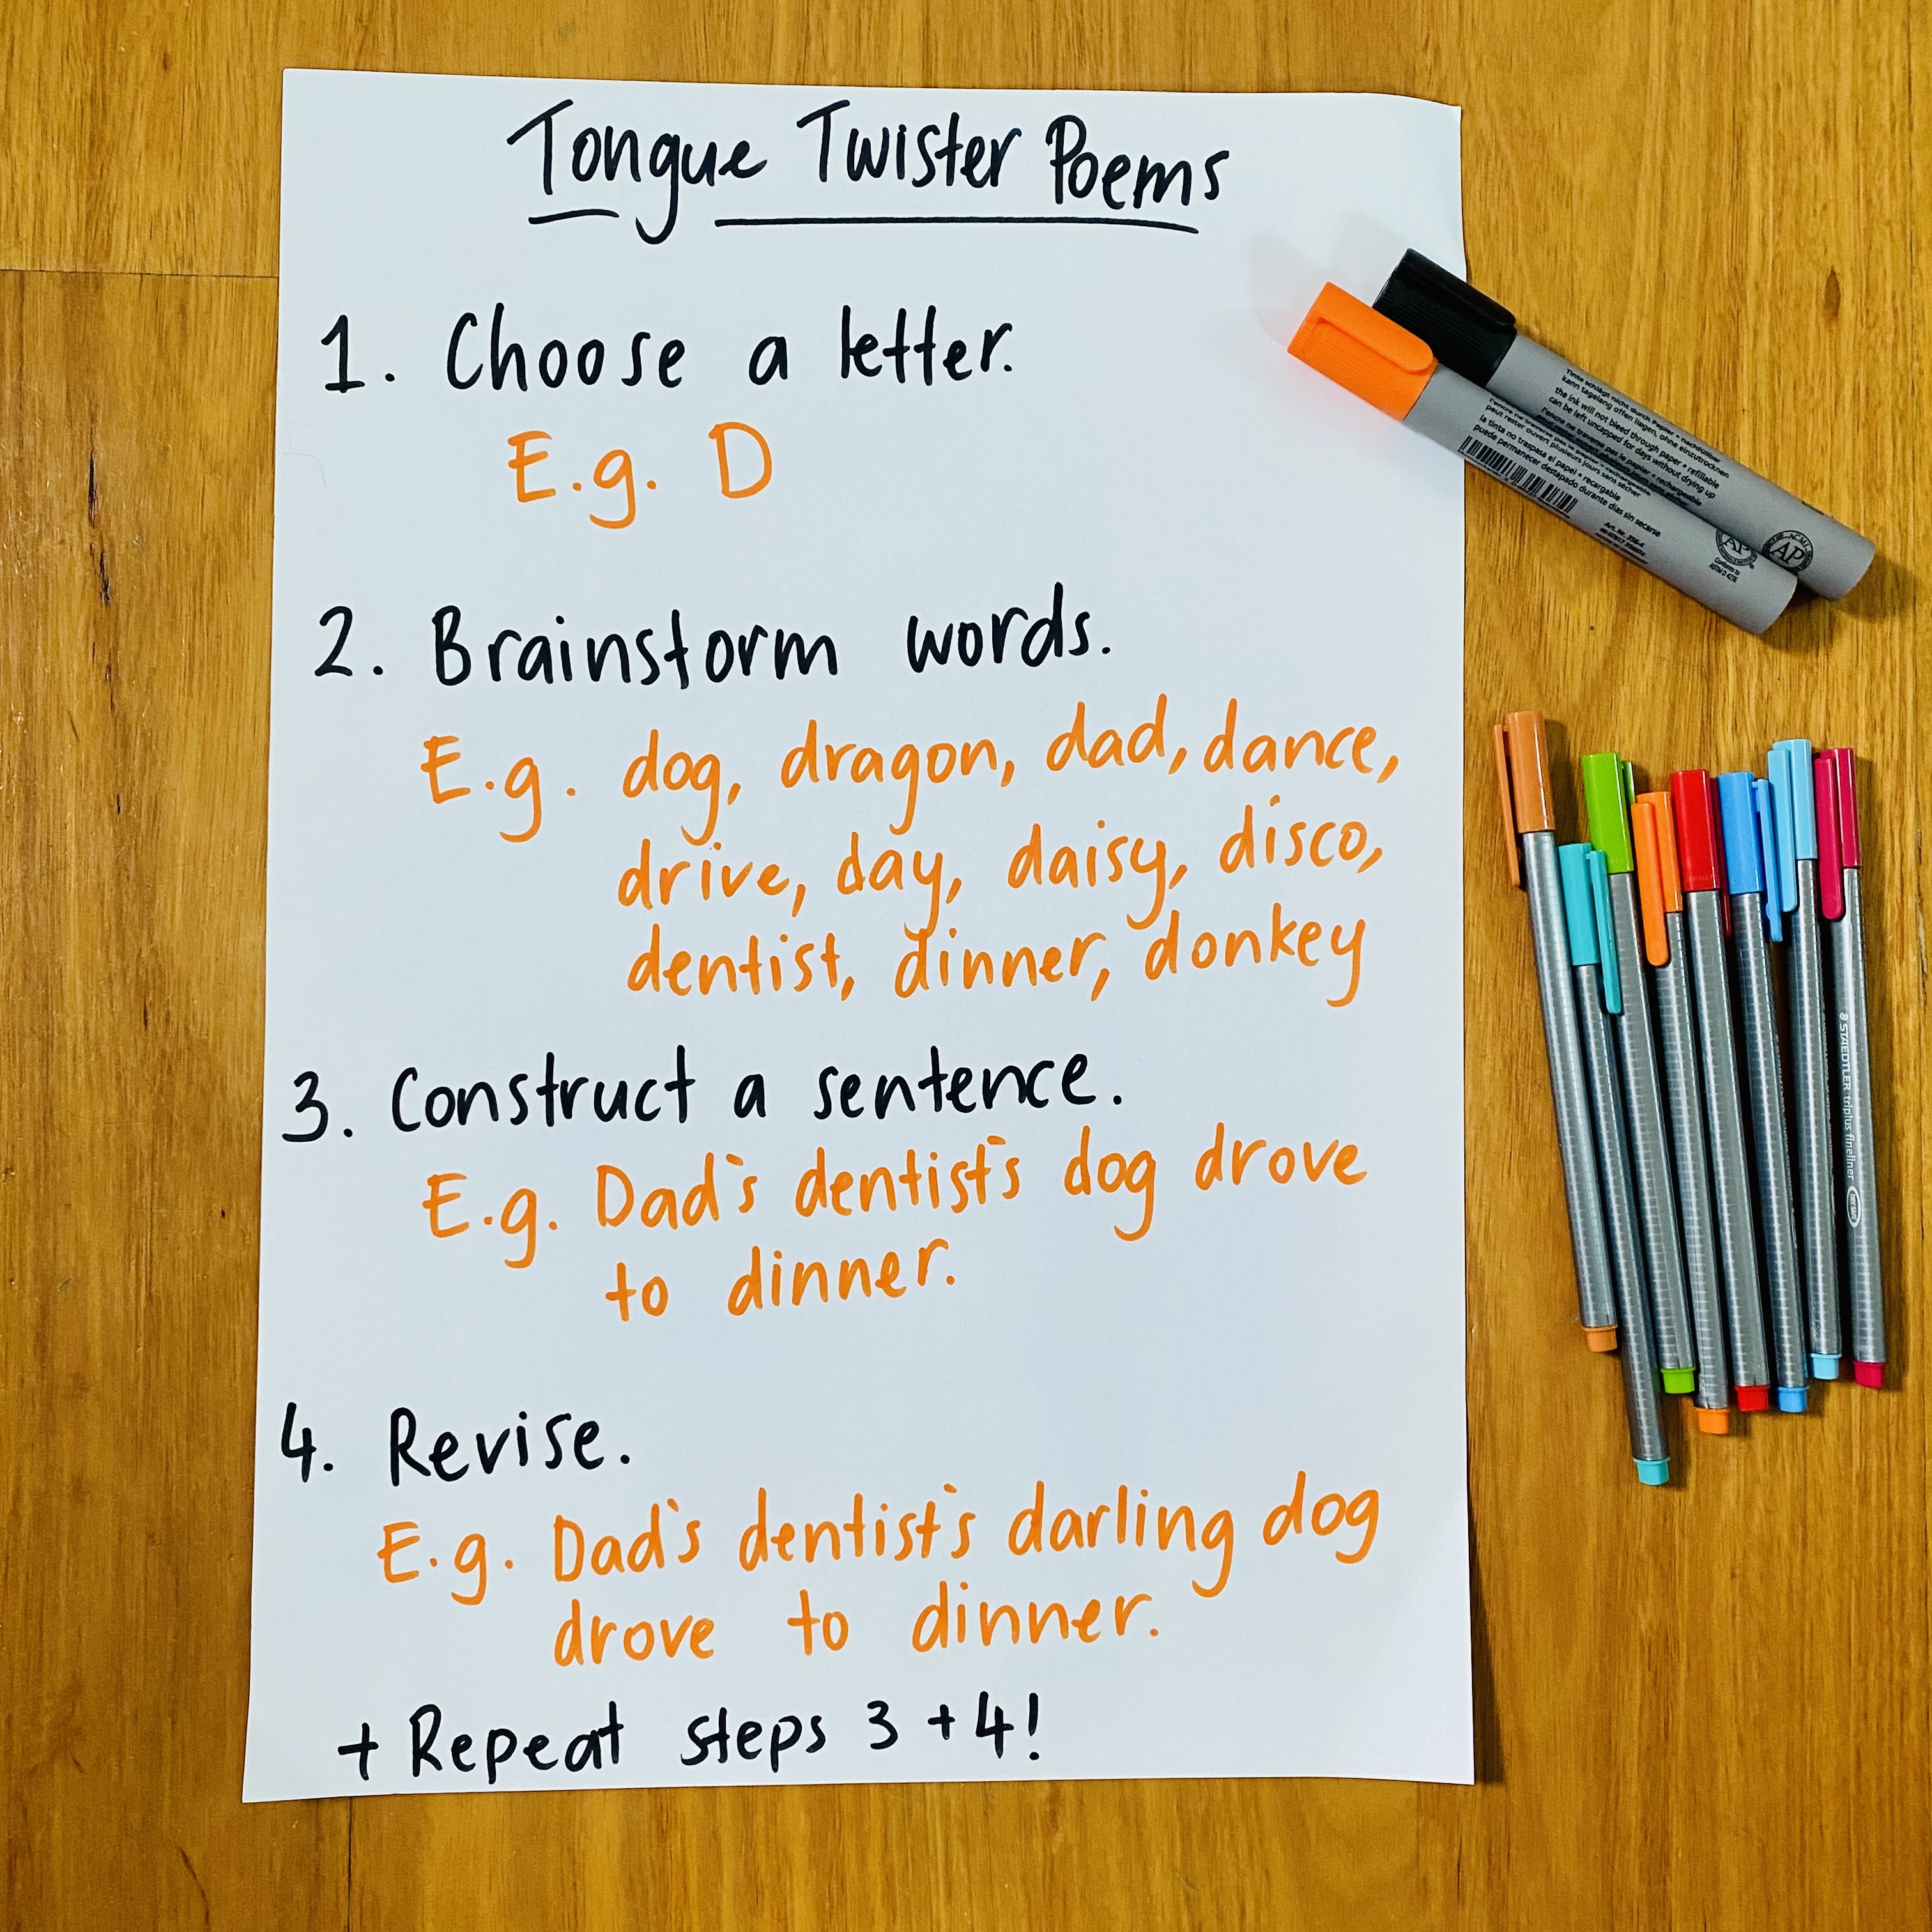 Tongue Twister Poems
1. Choose a letter.
E.g. D
2. Brainstorm words.
E.g. dog, dragon, dad, dance,
drive, day, daisy, disco,
dentist, dinner, donkey
3. Construct a sentence.
E.g. Dad's dentist's dog drove
to dinner.
4. Revise.
E.g. Dad's dentist's darling dog
drove to dinner.
+ Repeat steps 3 + 4!
Tinte schlägt nicht durch Papier • nachfüllbar
kann tagelang offen liegen, ohne einzutrocknen
the ink will not bleed through paper • refillable
can be left uncapped for days without drying up
peut rester ouvert plusieurs jours sans sécher
la tinta no traspasa el papel • recargable
puede permanecer destapado durante días sin secarse
ACMI
AP
AP
Conforms to
ASTM D 4236
STAEDTLER triplus fineliner